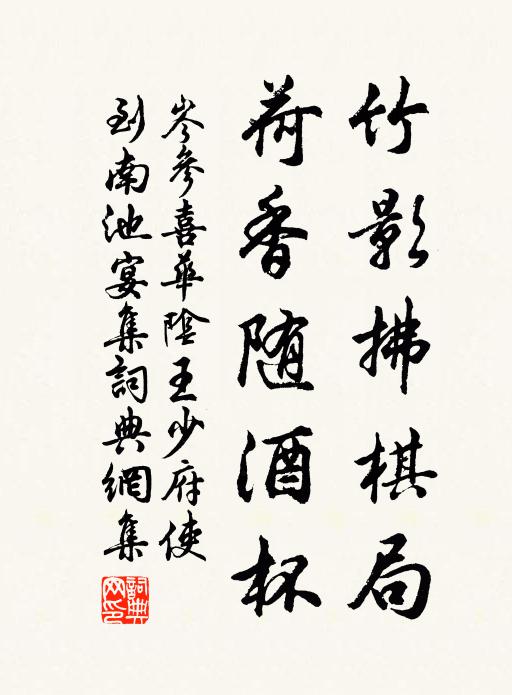 竹影拂棋局
荷香随酒杯
岑参喜華陰王少府使
到南池宴集詞典網集
詞典网印